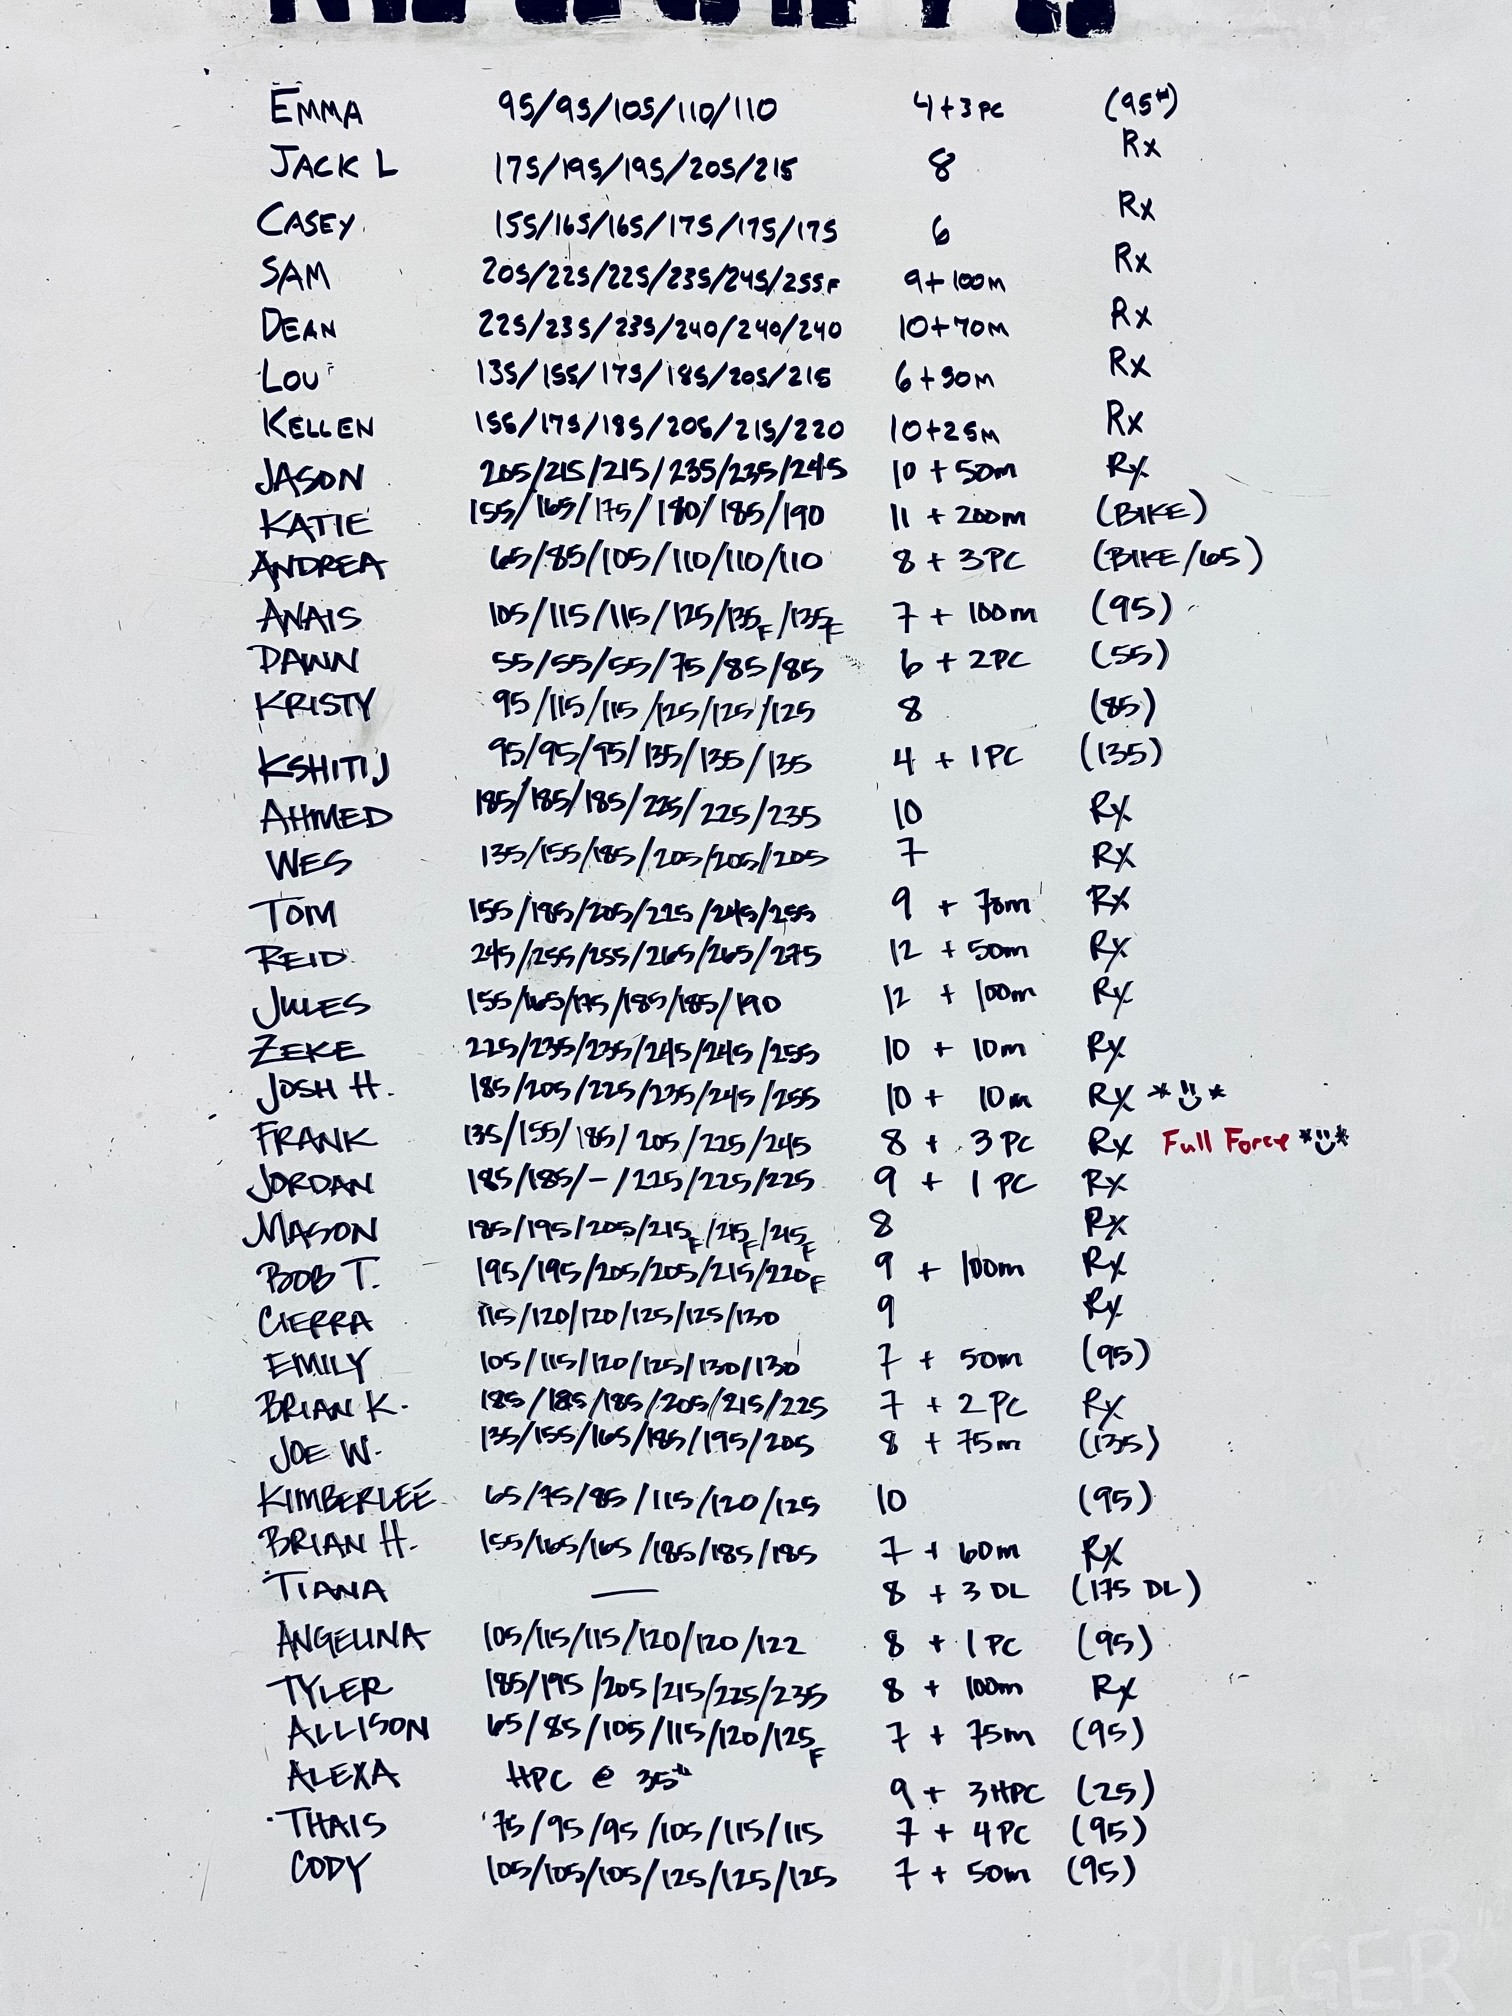 EMMA 95/95/105/110/110 4+3PC (95#)
JACK L 175/195/195/205/215 8 Rx
CASEY 155/165/165/175/175/175 6 Rx
SAM 205/225/225/235/245/255F 9+100M Rx
DEAN 225/235/235/240/240/240 10+70M Rx
LOU 135/155/175/185/205/215 6+90M Rx
KELLEN 155/175/185/205/215/220 10+25M Rx
JASON 205/215/215/235/235/245 10 + 50m Rx
KATIE 155/165/175/180/185/190 11 + 200m (BIKE)
ANDREA 65/85/105/110/110/110 8 + 3PC (BIKE/65)
ANAIS 105/115/115/125/135F/135F 7 + 100m (95)
DAWN 55/55/55/75/85/85 6 + 2PC (55)
KRISTY 95/115/115/125/125/125 8 (85)
KSHITIJ 95/95/95/135/135/135 4 + 1PC (135)
AHMED 185/185/185/225/225/235 10 Rx
WES 135/155/185/205/205/205 7 Rx
TOM 155/185/205/225/245/255 9 + 70m Rx
REID 245/255/255/265/265/275 12 + 50m Rx
JULES 155/165/175/185/185/190 12 + 100m Rx
ZEKE 225/235/235/245/245/255 10 + 10m Rx
JOSH H. 185/205/225/235/245/255 10 + 10m Rx
FRANK 135/155/185/205/225/245 8 + 3 PC Rx Full Force
JORDAN 185/185/-/225/225/225 9 + 1 PC Rx
MASON 185/195/205/215F/215F/215F 8 Rx
BOB T. 195/195/205/205/215/220F 9 + 100m Rx
CIERRA 115/120/120/125/125/130 9 Rx
EMILY 105/115/120/125/130/130 7 + 50m (95)
BRIAN K. 185/185/185/205/215/225 7 + 2 PC Rx
JOE W. 135/155/165/185/195/205 8 + 75m (135)
KIMBERLEE 65/75/85/115/120/125 10 (95)
BRIAN H. 155/165/165/185/185/185 7 + 60m Rx
TIANA — 8 + 3 DL (175 DL)
ANGELINA 105/115/115/120/120/122 8 + 1 PC (95)
TYLER 185/195/205/215/225/235 8 + 100m Rx
ALLISON 65/85/105/115/120/125F 7 + 75m (95)
ALEXA HPC @ 35# 9 + 3HPC (25)
THAIS 75/95/95/105/115/115 7 + 4PC (95)
CODY 105/105/105/125/125/125 7 + 50m (95)
BULGER